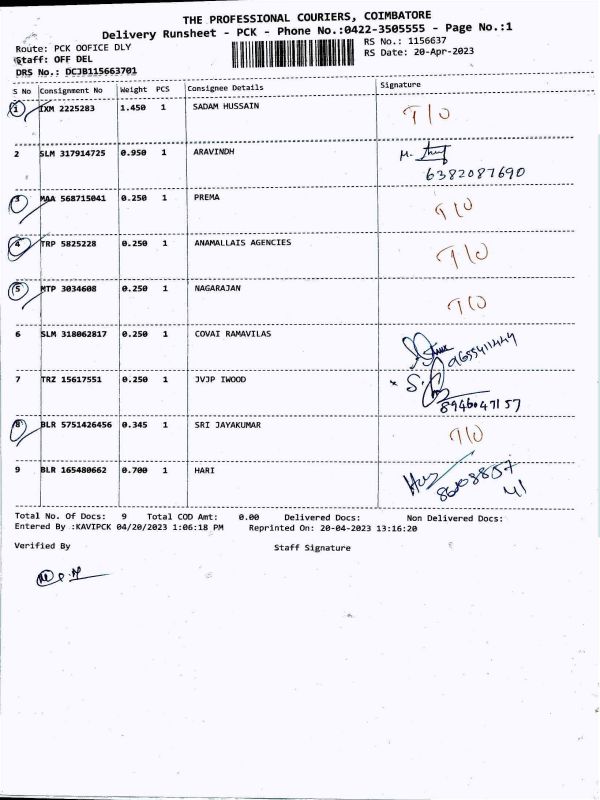 THE PROFESSIONAL COURIERS, COIMBATORE
Delivery Runsheet - PCK - Phone No.:0422-3505555 - Page No.:1
Route: PCK OOFICE DLY RS No.: 1156637
Staff: OFF DEL RS Date: 20-Apr-2023
DRS No.: DCJB115663701
S No Consignment No Weight PCS Consignee Details Signature
1 IXM 2225283 1.450 1 SADAM HUSSAIN T/O
2 SLM 317914725 0.950 1 ARAVINDH M.
6382087690
3 MAA 568715041 0.250 1 PREMA T/O
4 TRP 5825228 0.250 1 ANAMALLAIS AGENCIES T/O
5 MTP 3034608 0.250 1 NAGARAJAN T/O
6 SLM 318062817 0.250 1 COVAI RAMAVILAS
7 TRZ 15617551 0.250 1 JVJP IWOOD S.
8946047157
8 BLR 5751426456 0.345 1 SRI JAYAKUMAR T/O
9 BLR 165480662 0.700 1 HARI
Total No. Of Docs: 9 Total COD Amt: 0.00 Delivered Docs: Non Delivered Docs:
Entered By :KAVIPCK 04/20/2023 1:06:18 PM Reprinted On: 20-04-2023 13:16:20
Verified By Staff Signature